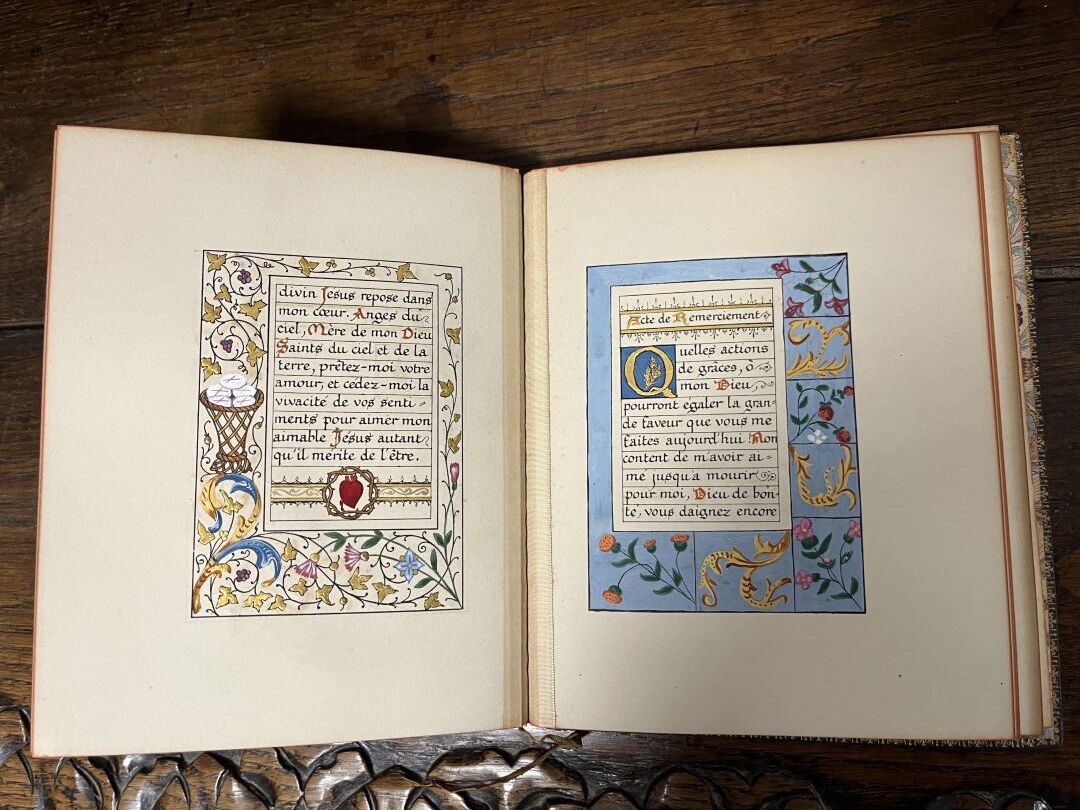 divin Jesus repose dans
mon cœur. Anges du
ciel, Mère de mon Dieu
Saints du ciel et de la
terre, prêtez-moi votre
amour, et cédez-moi la
vivacité de vos senti-
ments pour aimer mon
aimable Jésus autant
qu'il mérite de l'être.
Acte de Remerciement
Quelles actions
de grâces, ô
mon Dieu,
pourront égaler la gran-
de faveur que vous me
faites aujourd'hui Non
content de m'avoir ai-
mé jusqu'a mourir
pour moi, Dieu de bon-
té, vous daignez encore